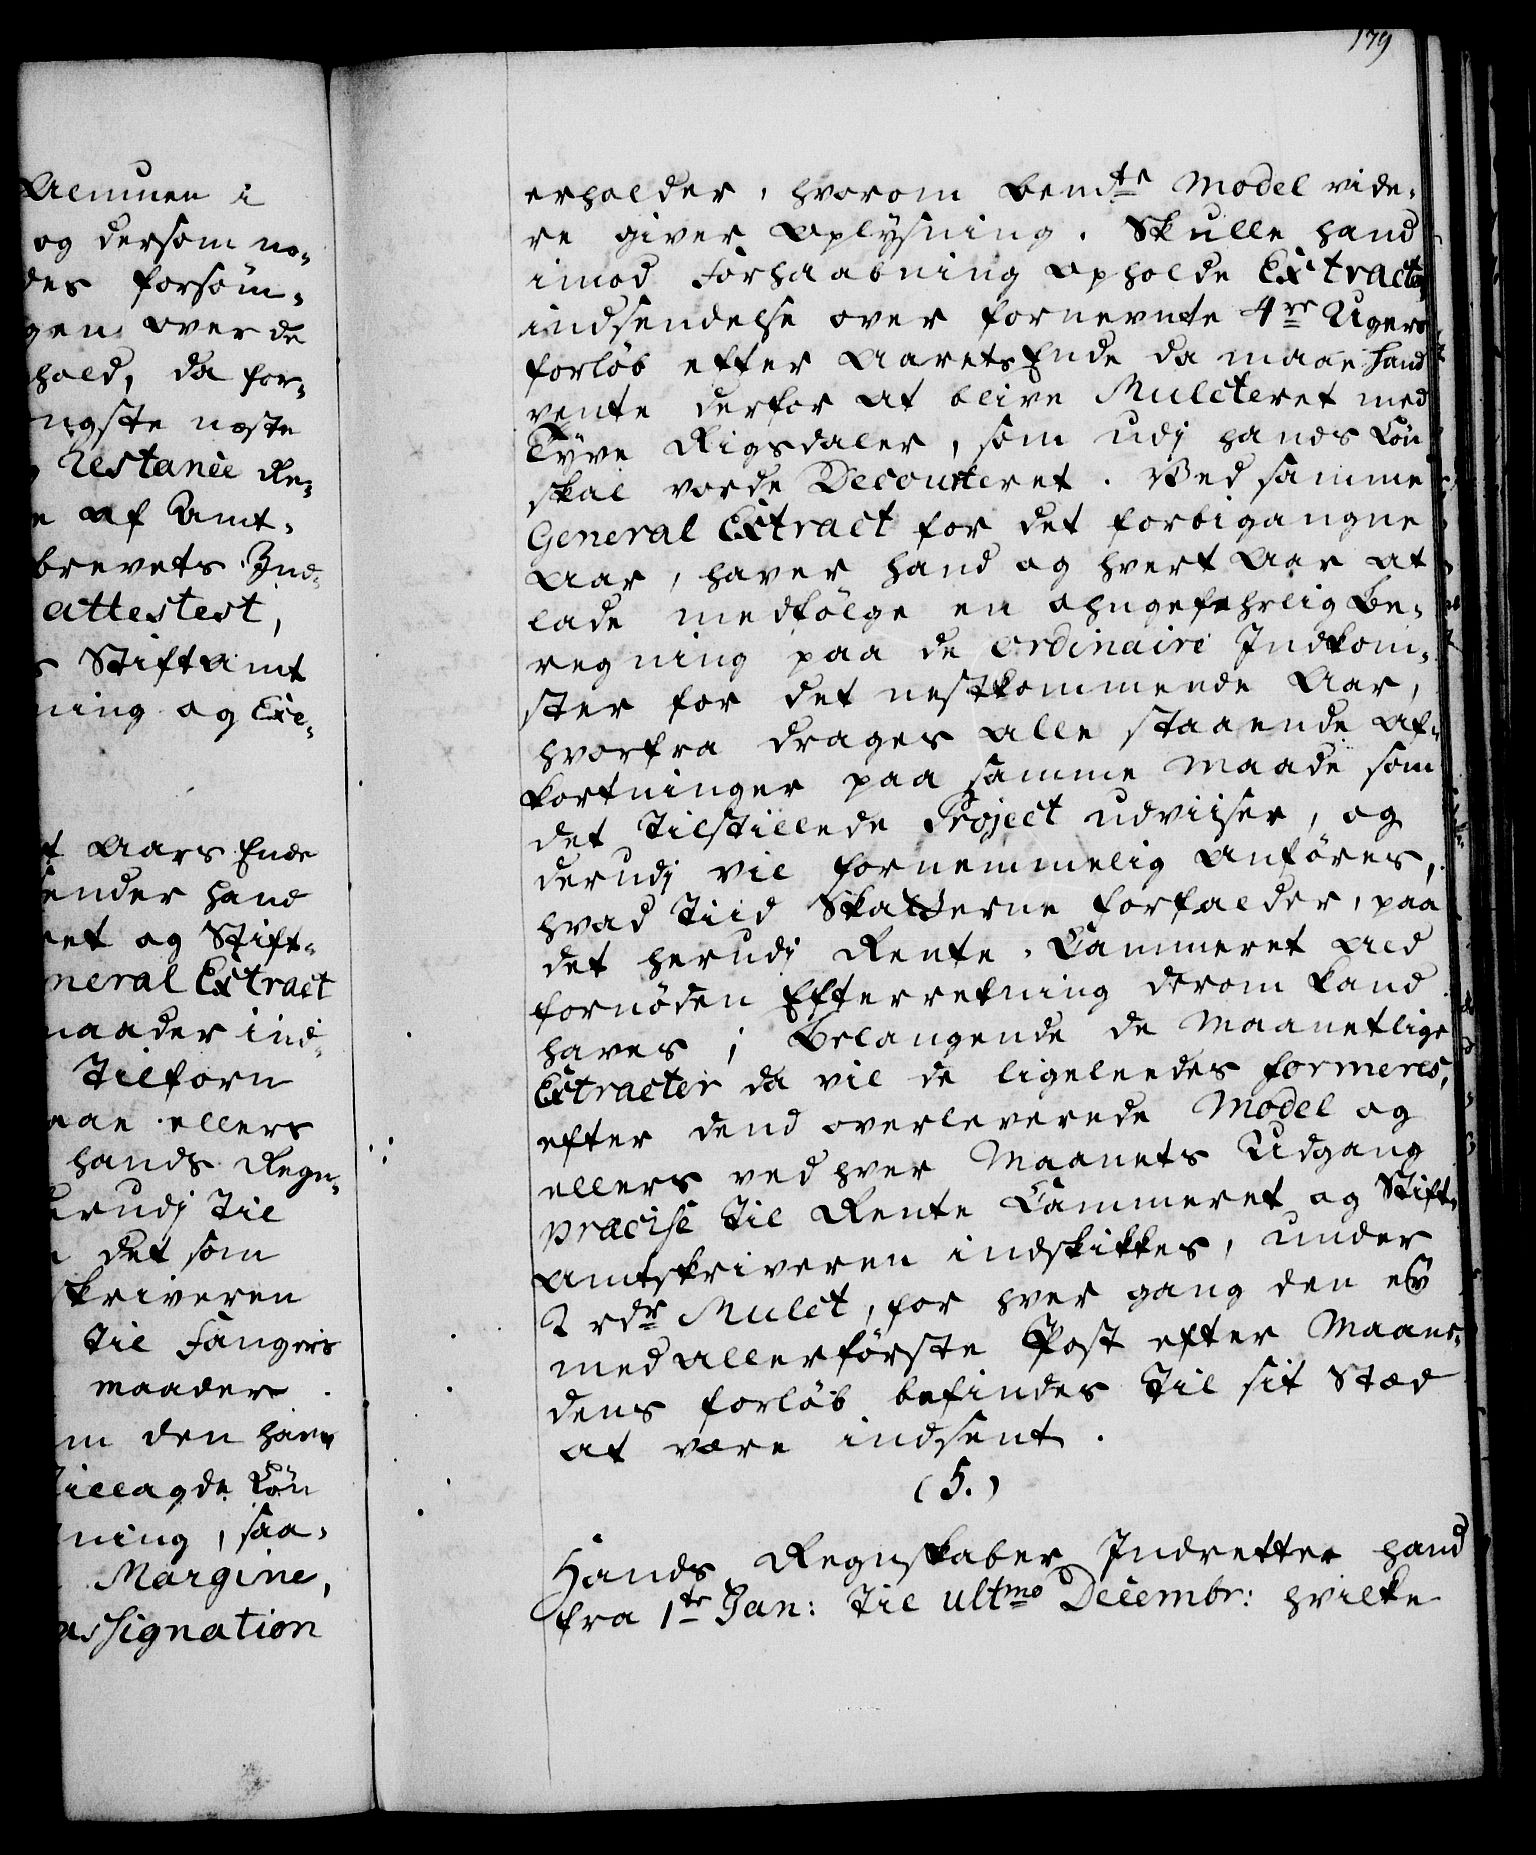 179
Almuen i
og dersom no-
des forsøm-
gen over de
hold, da for-
ngste neste
Restance Re-
af Amt-
brevets Ind-
attestert,
Stiftamt
ning og Exe-
Aars Ende
sender hand
ret og Stift-
neral Extract
maader ind-
Tilforn
maae ellers
hands Regn-
derudj til
det som
skriveren
til Fangers
maader.
den have
tillagde Løn
ning, saa-
Margine,
assignation
erholder, hvorom bemte Model vide-
re giver Oplysning. Skulle hand
imod Forhaabning opholde Extractens
indsendelse over fornevnte 4re Ugers
forløb efter Aarets Ende da maae hand
vente derfor at blive Mulcteret med
Tyve Rigsdaler, som udj hands Løn
skal vorde Decourteret. Ved samme
General Extract for det forbigangne
Aar, haver hand og hvert Aar at
lade medfølge en ohngefehrlig Be-
regning paa de ordinaire Indkom-
ster for det nestkommende Aar,
hvorfra drages alle staaende Af-
kortninger paa samme Maade som
det tilstillede Project udviiser, og
derudj vil fornemmelig anføres,
hvad Tiid Skatterne forfalder, paa
det herudj Rente-Cammeret all
fornøden Efterretning derom kand
haves; Belangende de Maanetlige
Extracter da vil de ligeleedes formeres,
efter dend overleverede Model og
ellers ved hver Maanets Udgang
præcise til Rente Cammeret og Stift-
amtskriveren indskikkes, under
2 rdr Mulct, for hver gang den ey
med allerførste Post efter Maane-
dens forløb befindes til sit Stæd
at være indsent.
(5.)
Hands Regnskaber Indretter hand
fra 1te Jan: til ultmo Decembr: hvilke